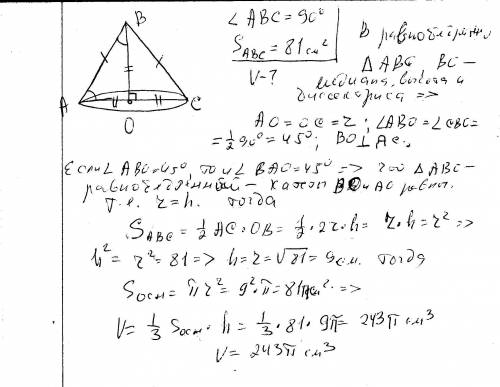 B
A
C
O
∠ABC = 90°
S_ABC = 81 см²
V - ?
В равнобедренном
△ABC BC -
медиана, высота и
биссектриса =>
AO = OC = r; ∠ABO = ∠CBO =
= ½90° = 45°; BO⊥AC.
Если ∠ABO = 45°, то и ∠BAO = 45° => △AB -
равнобедренный - катет BO и AO равны.
т.е. r = h. тогда
S_ABC = ½ AC · OB = ½ · 2r · h = r · h = r² =>
h² = r² = 81 => h = r = √81 = 9 см. тогда
S осн = πr² = 9² · π = 81π см² =>
V = ⅓ S осн · h = ⅓ · 81 · 9π = 243π см³
V = 243π см³